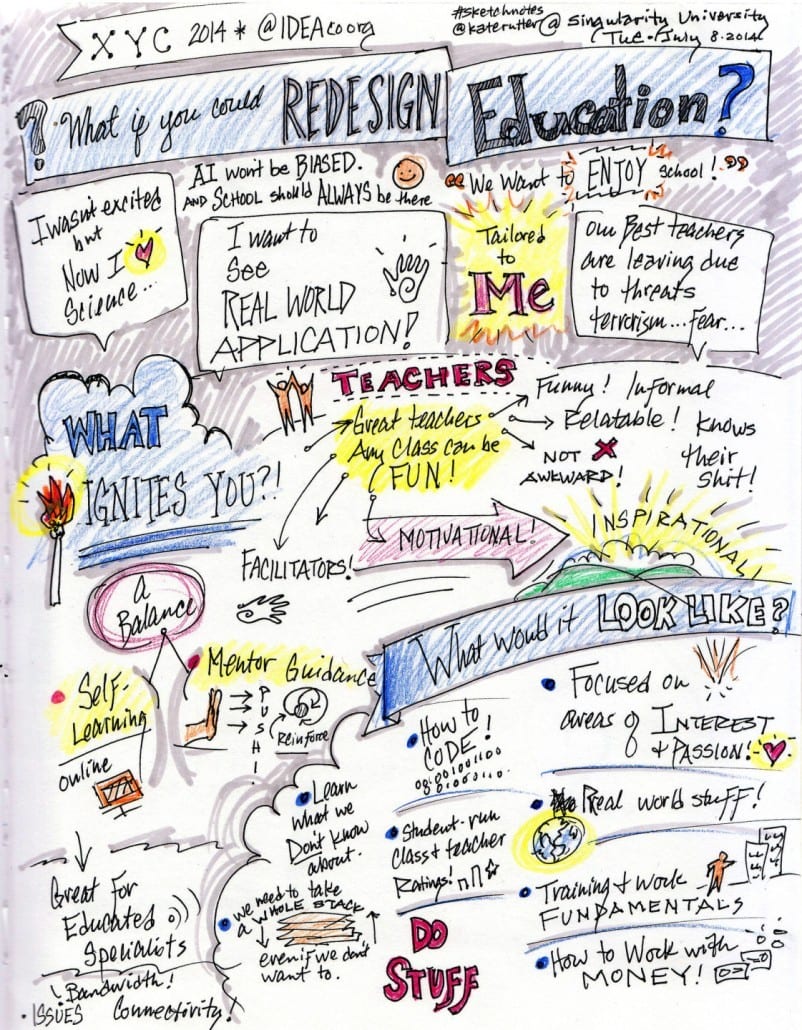 XYC 2014 * @IDEAco.org
#sketchnotes
@katerutter @ Singularity University
Tue. July 8. 2014
? What if you could REDESIGN Education?
AI won't be BIASED.
AND SCHOOL should ALWAYS be there
"We Want to ENJOY school!"
I wasn't excited
but
Now I
Science...
I want to
See
REAL WORLD
APPLICATION!
Tailored
to
Me
Our Best teachers
are leaving due
to threats
terrorism....Fear...
WHAT
IGNITES YOU?!
TEACHERS
Great teachers
Any Class can be
FUN!
Funny! Informal
Relatable! Knows
their
shit!
NOT X
AWKWARD!
FACILITATORS!
MOTIVATIONAL!
INSPIRATIONAL!
a
Balance
Self-
Learning
online
Great for
Educated
Specialists
Bandwidth!
• ISSUES Connectivity!
Mentor Guidance
PUSH!
Reinforce
What would it LOOK LIKE?
• How to
CODE!
• Learn
what we
Don't know
about.
• Student-run
Class & teacher
Ratings!
• we need to take
a WHOLE STACK
even if we don't
want to.
DO
STUFF
• Focused on
areas of INTEREST
+ PASSION!
• Real world stuff!
• Training + Work
FUNDAMENTALS
• How to Work with
MONEY!